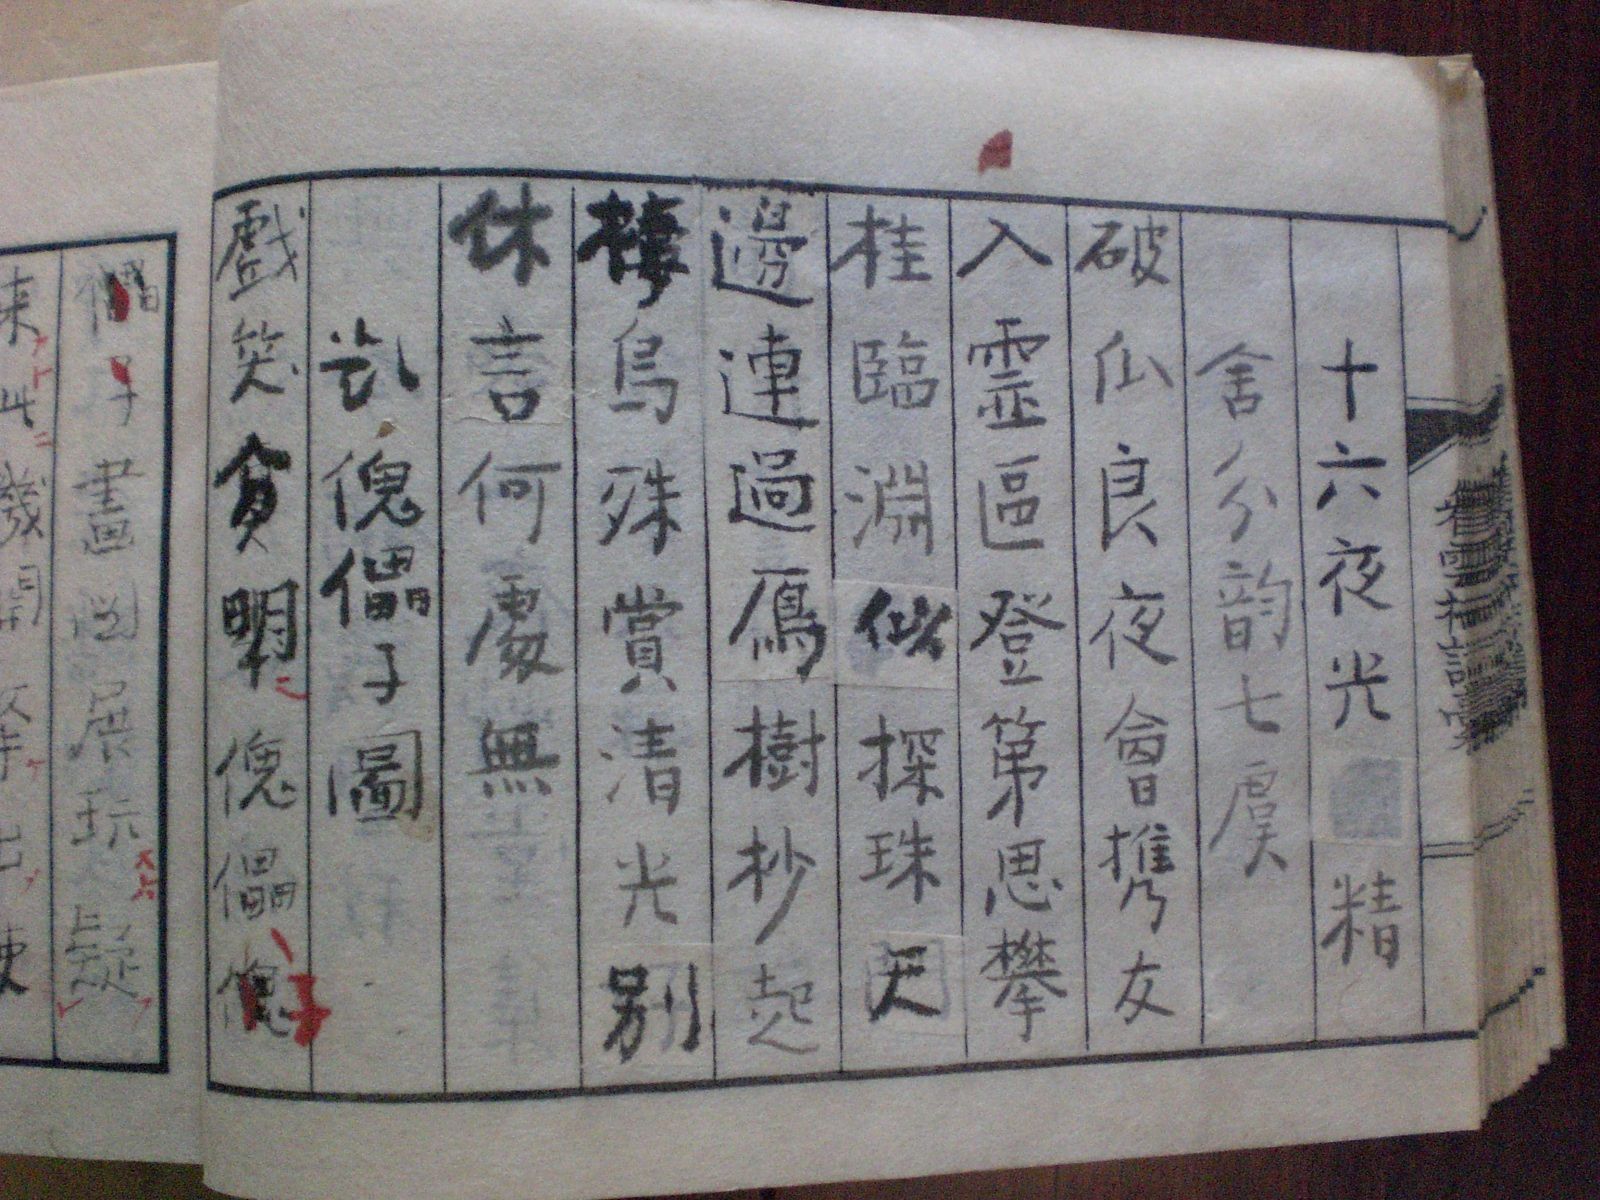 十六夜光 精
舍分韵七虞
破瓜良夜會携友
入靈區登第思攀
桂臨淵似探珠天
邊連過鴈樹杪起
棲烏殊賞清光別
休言何處無
傀儡子圖
戲笑貧 傀儡傀子
儡子畫圖展玩疑
來此幾開